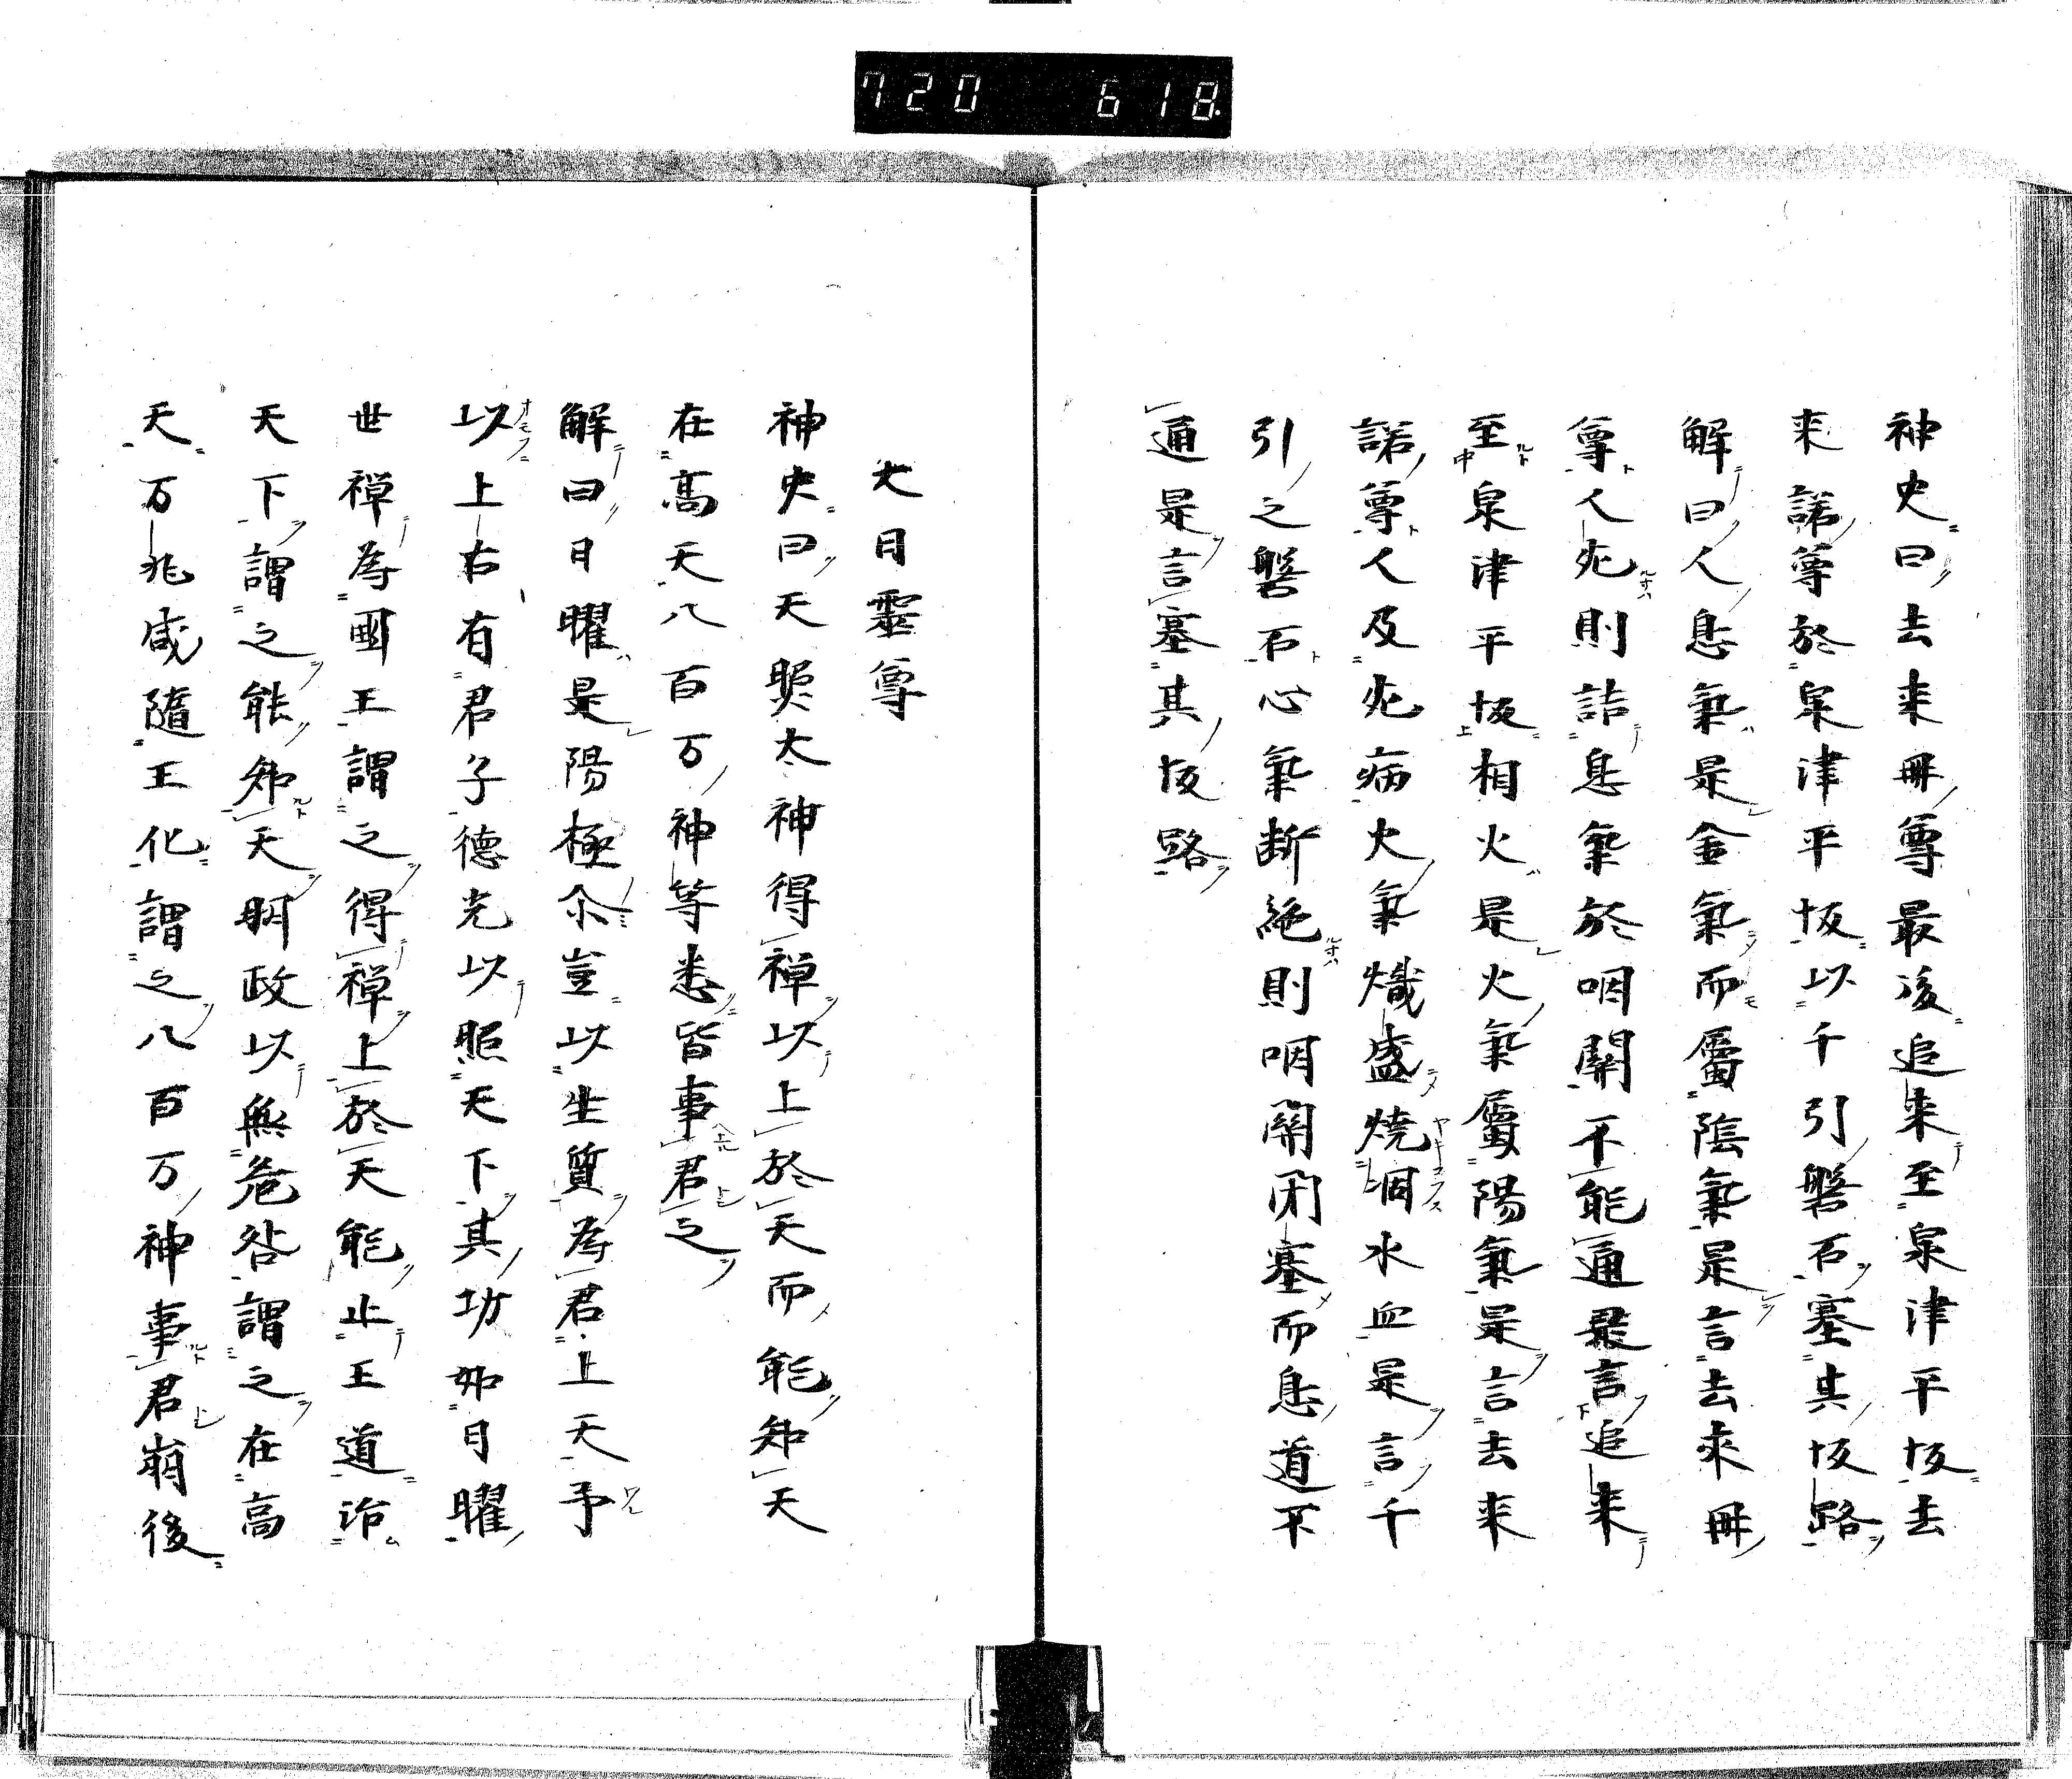 720 618
神史曰去来冊尊最後追来至泉津平坂去
来諾尊於泉津平坂以千引磐石塞其坂路
解曰人息氣是金氣而屬陰氣是言去來冊
尊人死則詰息氣於咽關不能通是言追来
至泉津平坂相火是火氣屬陽氣是言去来
諾尊人及死病火氣熾盛焼涸水血是言千
引之磐石心氣断絶則咽關閉塞而息道不
通是言塞其坂路
大日霊尊
神史曰天照太神得禅以上於天而能知天
在高天八百万神等悉皆事君之
解曰日曜是陽極尒豈以生質為君上天乎
以上右有君子德光以照天下其功如日曜
世禅為國王謂之得禅上於天能止王道治
天下謂之能知天明政以無危咎謂之在高
天万兆咸随王化謂之八百万神事君崩後